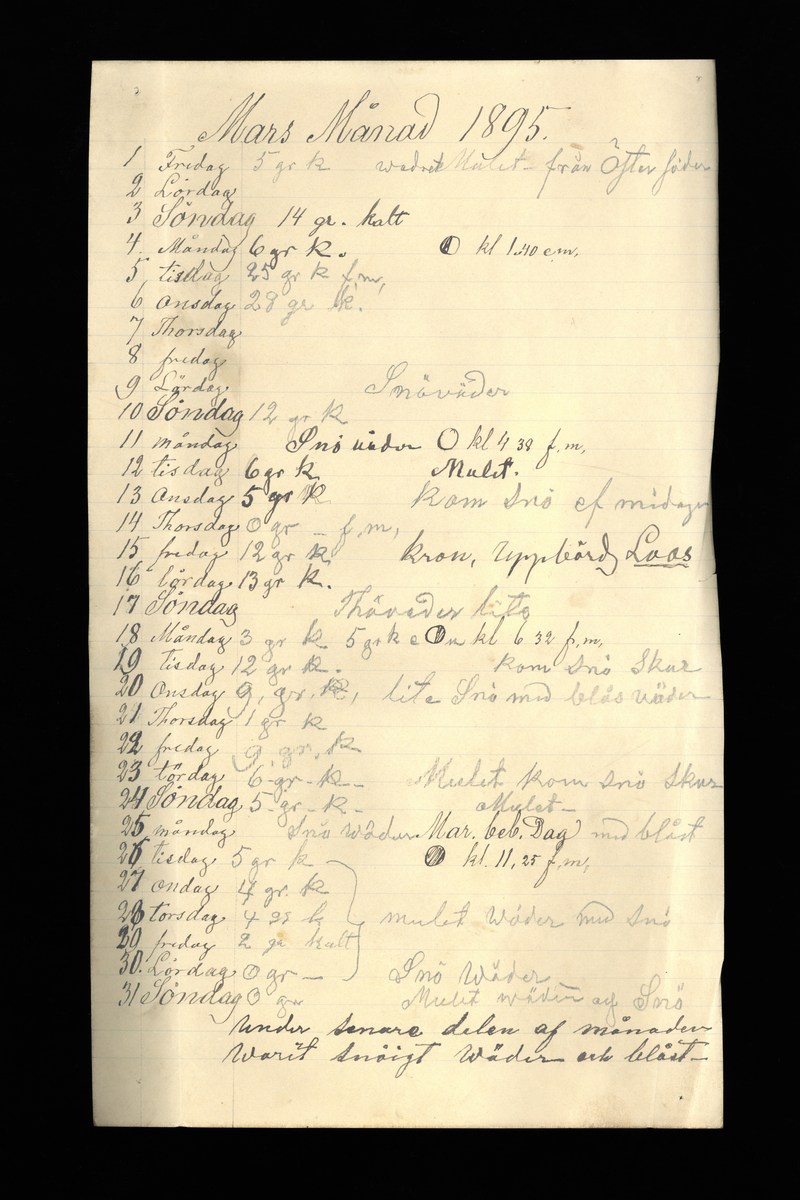 Mars Månad 1895.
1 Fredag 5 gr k wedret Mulet - från Öster söder
2 Lördag
3 Söndag 14 gr. kalt
4. Måndag 6 gr k. kl 1.40 e.m,
5 tisdag 25 gr k f,m,
6 Onsdag 28 gr k.
7 Thorsdag
8 fredag
9 Lördag Snöväder
10 Söndag 12 gr k
11 måndag Snö väder kl 4 38 f,m,
12 tisdag 6 gr k Mulet.
13 Onsdag 5 gr k kom snö ef midagen
14 Thorsdag 0 gr - f,m,
15 fredag 12 gr k kron, Uppbörd Loos
16 lördag 13 gr k.
17 Söndag Thöväder lite
18 Måndag 3 gr k 5 gr k kl 6 32 f,m,
19 tisdag 12 gr k. kom snö Skur
20 Onsdag 9, gr, k, lite Snö med blås väder
21 Thorsdag 1 gr k
22 fredag 9 gr, k
23 lördag 6-gr-k- Mulet kom snö Skur
24 Söndag 5-gr-k- Mulet-
25 måndag Snö Wäder Mar. beb. Dag med blåst
26 tisdag 5 gr k kl. 11,25 f,m,
27 Ondag 4 gr. k
28 torsdag 4 gr k mulet Wäder med Snö
fredag 2 gr kalt
30. Lördag 0 gr - Snö Wäder
31 Söndag 0 gr Mulet wäder og Snö
Under senare delen af månaden
Warit Snöigt Wäder och blåst-